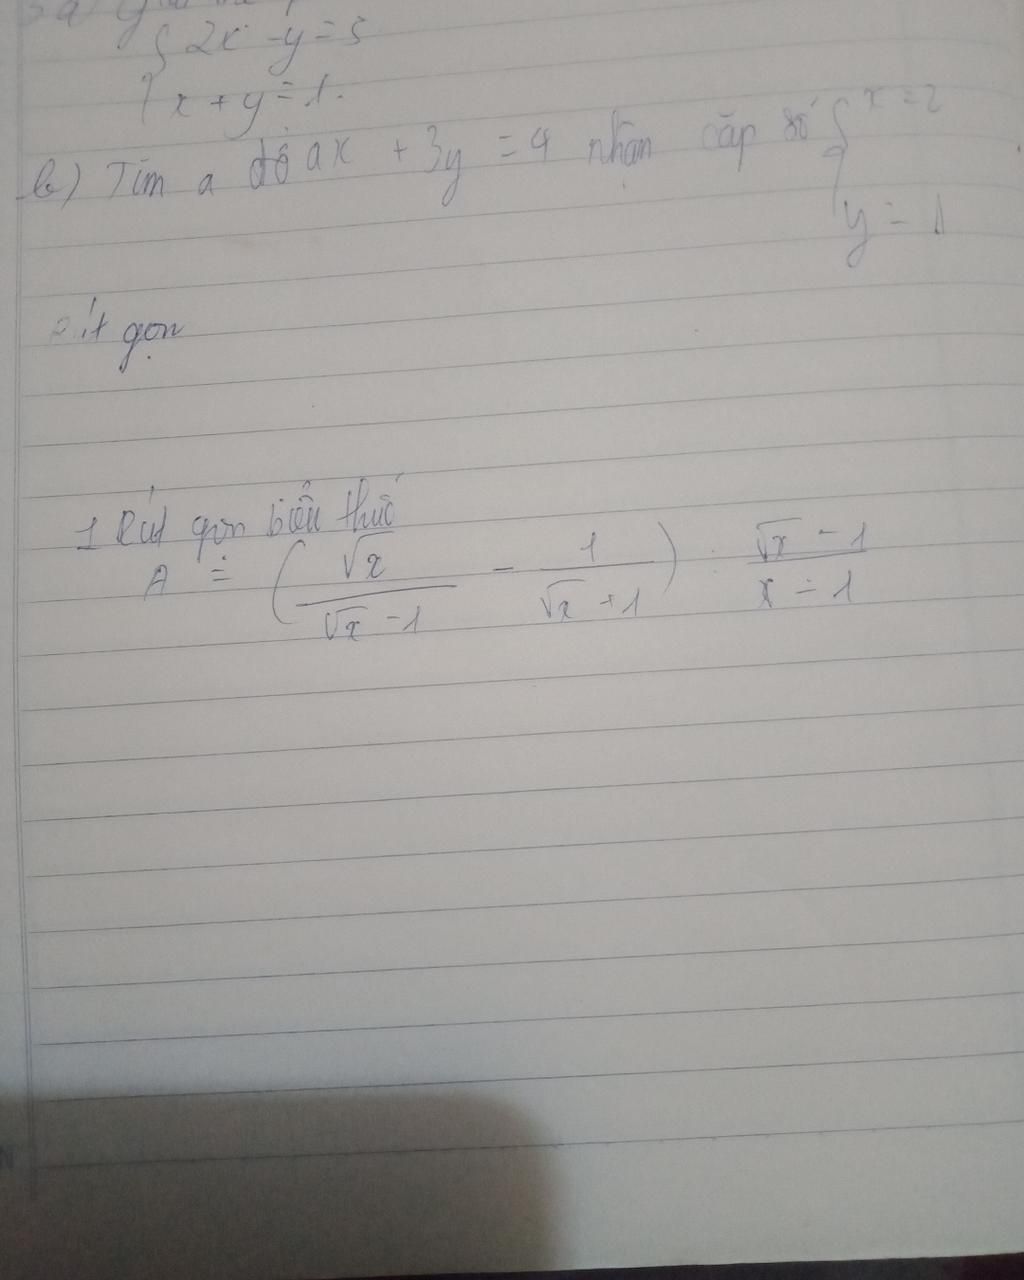 { 2x - y = 5
x + y = 1.
b) Tìm a để ax + 3y = 4 nhận cặp số { x = 2
y = 1
gọn
1 Rút gọn biểu thức
A = ( √x / √x - 1 - 1 / √x + 1 ) . √x - 1 / x - 1